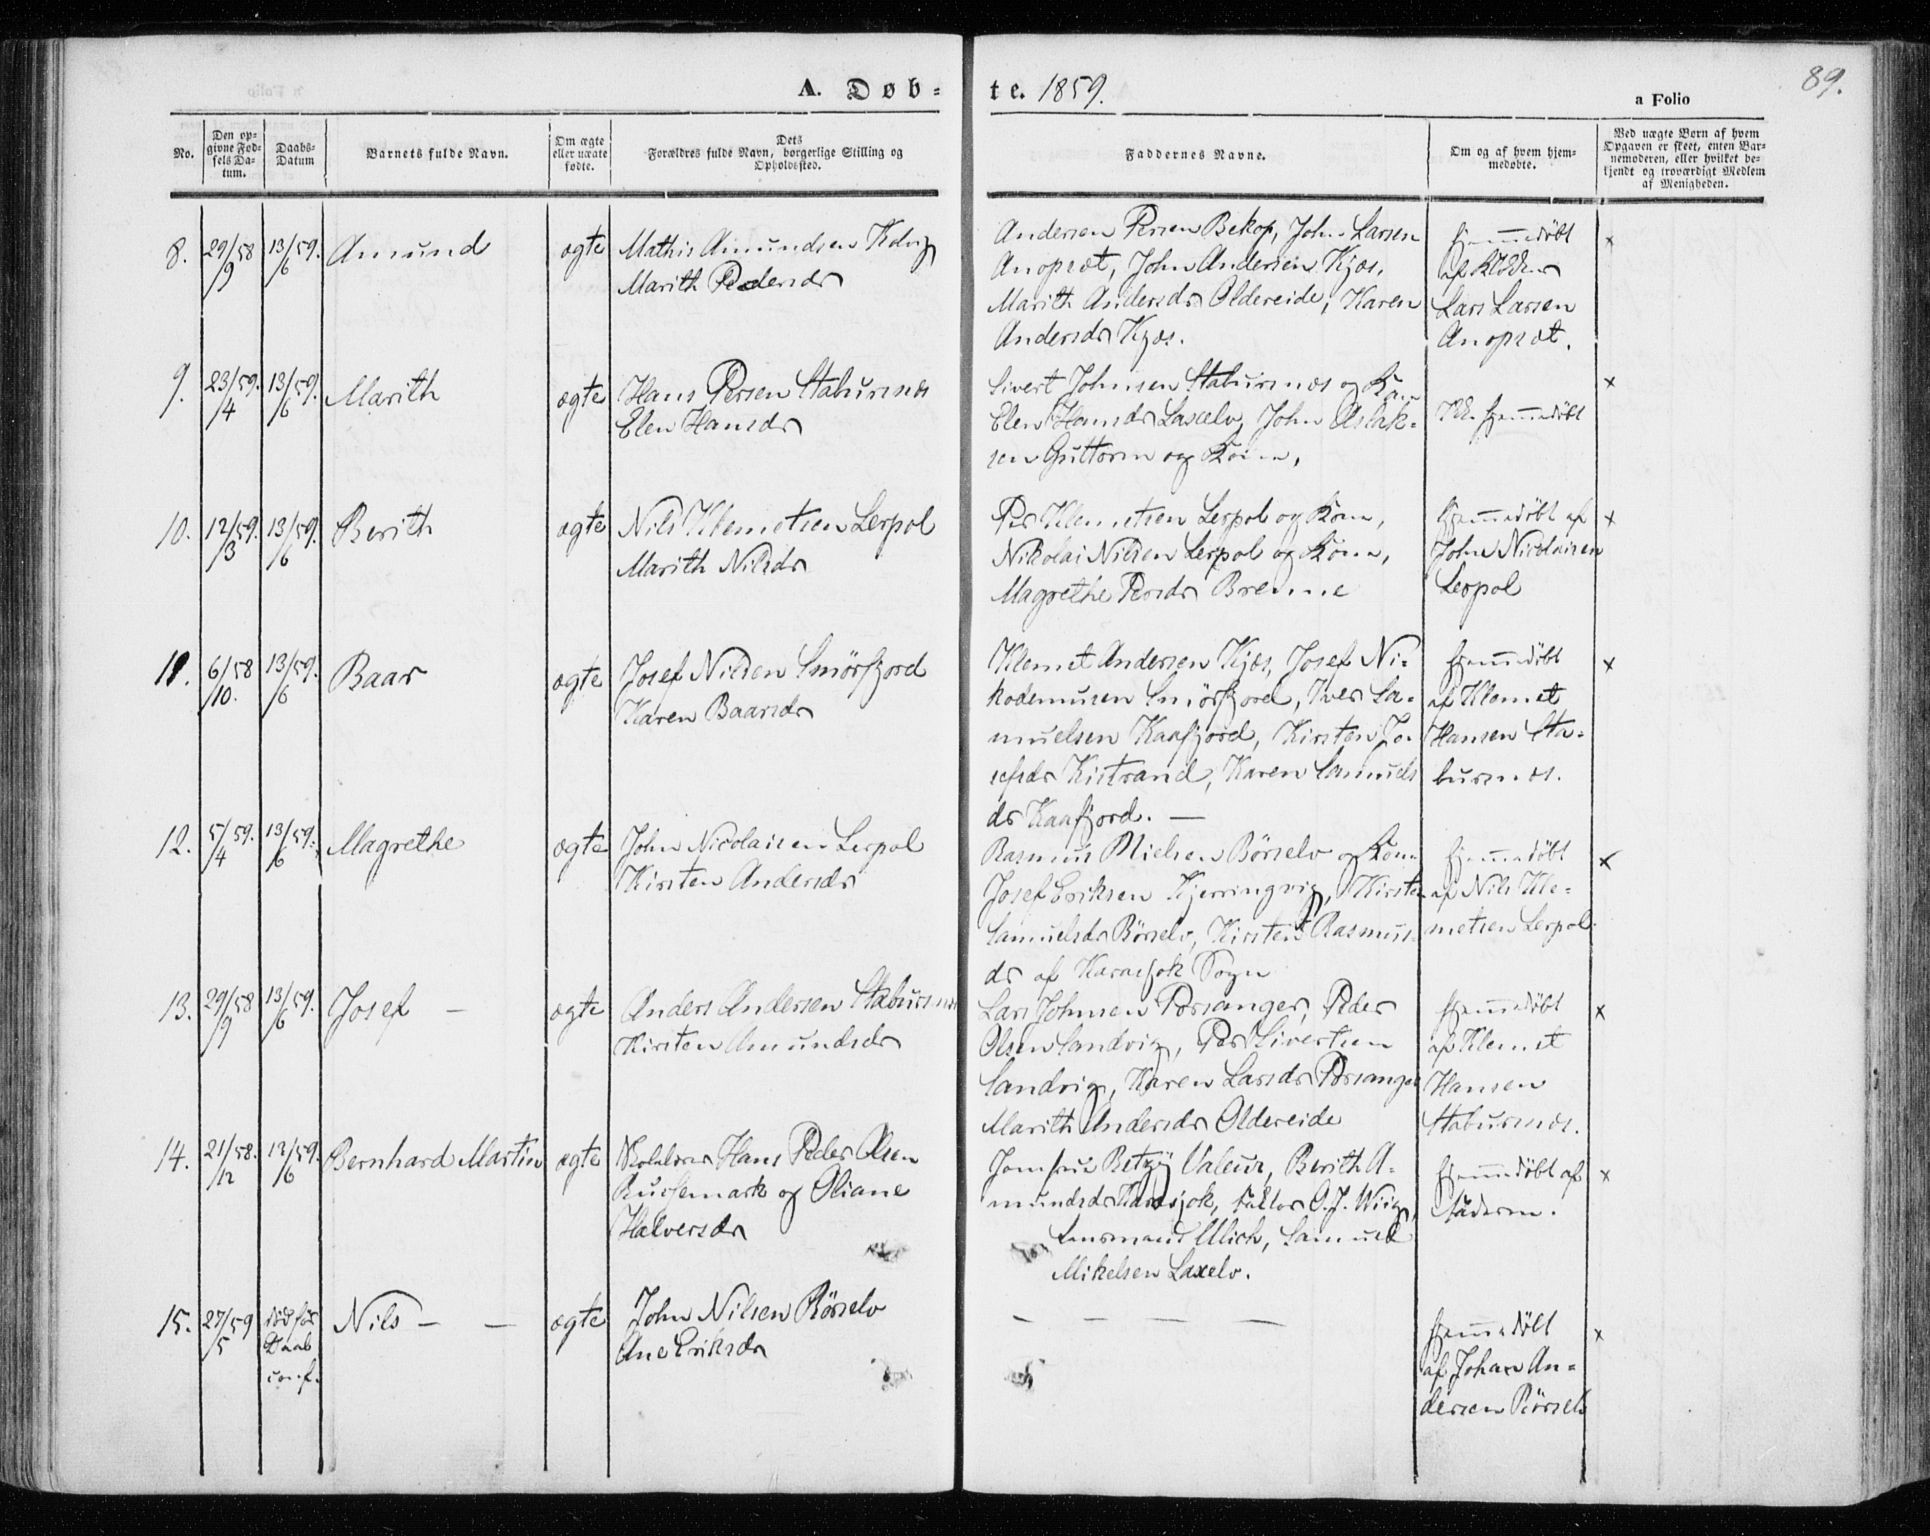 A. Døb-
te. 1859.
89.
a Folio
No.
Den op-
givne Fød-
sels Da-
tum.
Daabs-
Datum
Barnets fulde Navn.
Om ægte
eller uægte
fødte.
Dets
Forældres fulde Navn, borgerlige Stilling og
Opholdssted.
Faddernes Navne.
Om og af hvem hjem-
medøbte.
Ved uægte Børn af hvem
Opgaven er skeet, enten Bar-
nemoderen, eller hvilket be-
kjendt og troværdigt Medlem
af Menigheden.
8. 29/58 /9 13/59. /6 Amund ægte
Mathis Amundsen
Marith Pedersdr
Andersen Persen Bekop, John Larsen
Anopræt, John Andersen Kjæs,
Marith Andersdr Oldereide, Karen
Andersdr Kjæs.
hjemmedøbt
af
Lars Larsen
Anopræt.
x
9. 23/59. /4 13/59. /6 Marith ægte
Hans Persen Stabursnæs
Elen Hansdr
Sivert Johnsen Stabursnæs og Kone
Elen Hansdr Laxelv, John Aslak-
sen Guttorm og Kone,
hjemmedøbt
x
10. 12/59. /3 13/59. /6 Berith ægte
Nils Klemetsen Lerpol
Marith Nilsdr
Per Klemetsen Lerpol og Kone,
Nikolai Nilsen Lerpol og Kone,
Magrethe Persdr Brenne
hjemmedøbt af
John Nicolaisen
Lerpol
x
11. 6/58 /10. 13/59. /6 Baar ægte
Josef Nilsen Smörfjord
Karen Baarsdr
Klemet Andersen Kjæs, Josef Ni-
kodemusen Smörfjord, Iver Sa-
muelsen Kaafjord, Kirsten Jo-
sefsdr Kistrand, Karen Samuels
dr Kaafjord. —
hjemmedøbt
af Klemet
Hansen Sta-
bursnæs.
x
12. 5/59. /4 13/59. /6 Magrethe ægte
John Nicolaisen Lerpol
Kirsten Andersdr
Rasmus Nielsen Börselv og Kone
Josef Eriksen Kjerringvig, Kirsten
Samuelsdr Börselv, Kirsten Rasmus-
dr af Karasjok Sogn
hjemmedøbt
af Nils Kle-
metsen Lerpol.
x
13. 29/58 /9 13/59. /6 Josef — ægte
Anders Andersen Stabursnæs
Kirsten Amundsdr
Lars Johnsen Porsanger, Peder
Olsen Sandvig, Per Sivertsen
Sandvig, Karen Larsdr Porsanger
Marith Andersdr Oldereide
hjemmedøbt
af Klemet
Hansen
Stabursnæs.
x
14. 21/58. /12 13/59. /6 Bernhard Martin ægte
Skolelærer Hans Peder Olsen
Russemark og Oliane
Halversdr
Jomfrue Betzy Valeur, Berith A-
mundsdr Karasjok, Faktor O. J. Wiig,
Lensmand Ulich, Samuel
Mikelsen Laxelv.
hjemmedøbt af
Faderen.
x
15. 27/59 /5 død før
Daab
conf. Nils — — ægte
John Nilsen Börselv
Ane Eriksdr
— — — — —
hjemmedøbt
af Johan An-
dersen Börselv
x